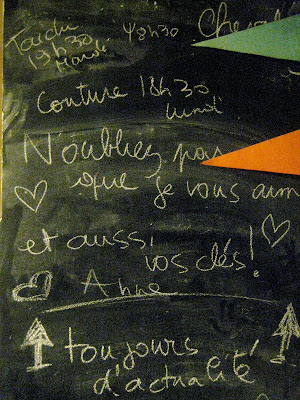 Taichi
19h30
Mardi
Couture 18h30
lundi
N'oubliez pas
que je vous aim
et aussi
vos clés!
Anne
toujours
d'actualité